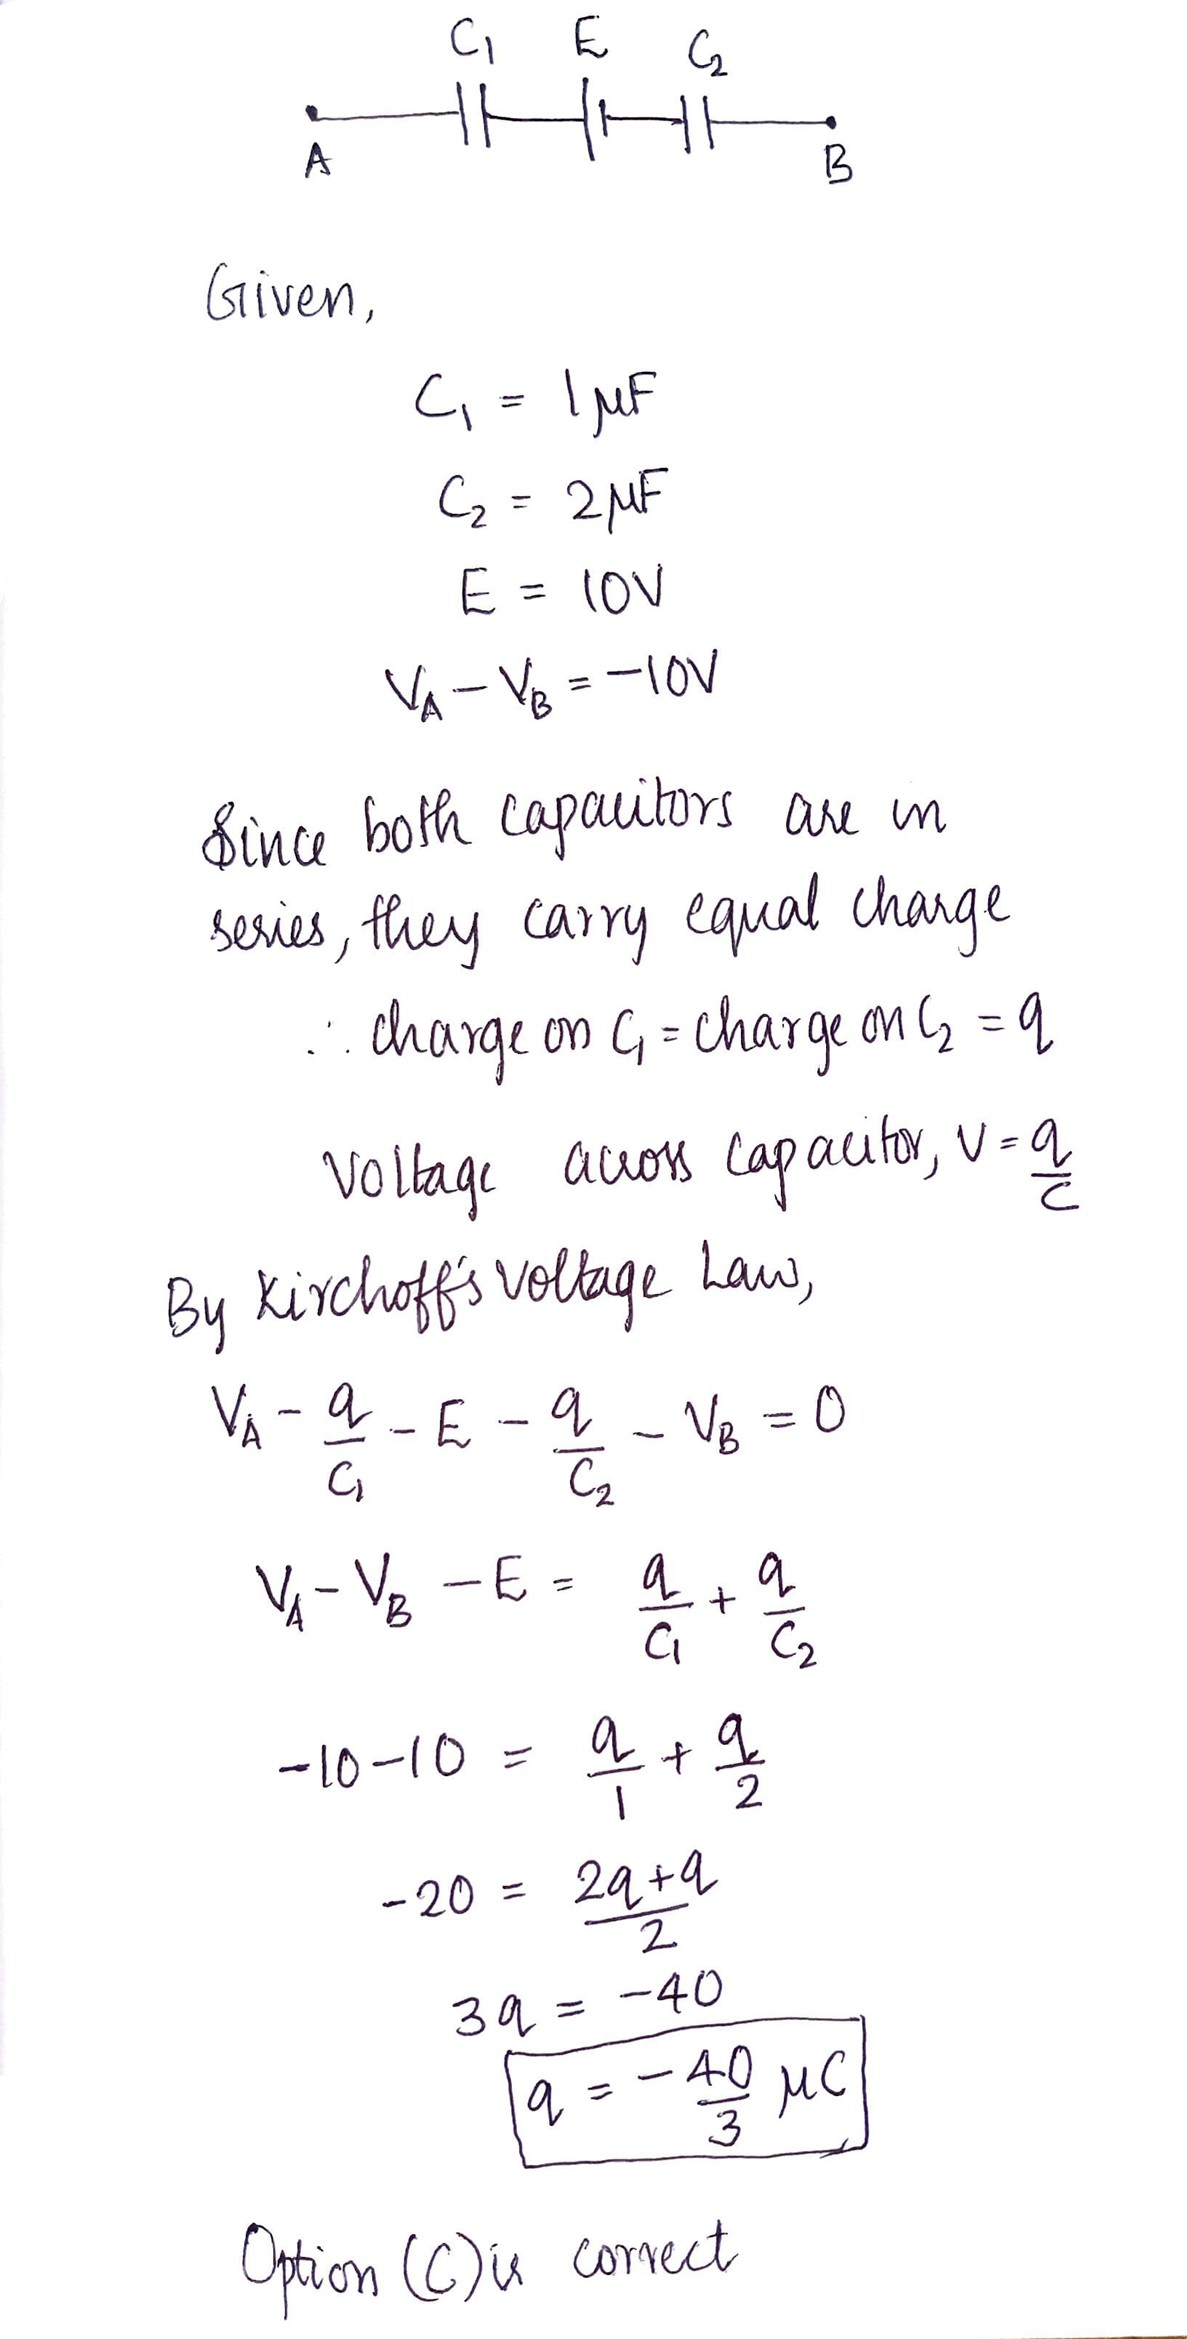 C₁ E C₂
A B
Given,
C₁ = 1μF
C₂ = 2μF
E = 10V
V_A - V_B = -10V
Since both capacitors are in
series, they carry equal charge
∴ charge on C₁ = charge on C₂ = q
Voltage across capacitor, V = q/C
By Kirchoff's Voltage Law,
V_A - q/C₁ - E - q/C₂ - V_B = 0
V_A - V_B - E = q/C₁ + q/C₂
-10-10 = q/1 + q/2
-20 = (2q+q)/2
3q = -40
q = -40/3 μC
Option (C) is correct